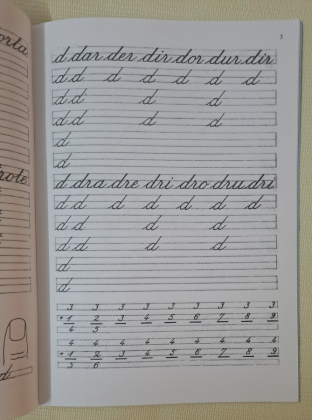 orta
rote
d
3
d dar der dir dor dur dir
d d d d d d d
d d d d
d d d d
d
d
d dra dre dri dro dru dri
d d d d d d d
d d d d
d d d d
d
d
3 3 3 3 3 3 3 3 3
+1 2 3 4 5 6 7 8 9
4 5
4 4 4 4 4 4 4 4 4
+1 2 3 4 5 6 7 8 9
5 6